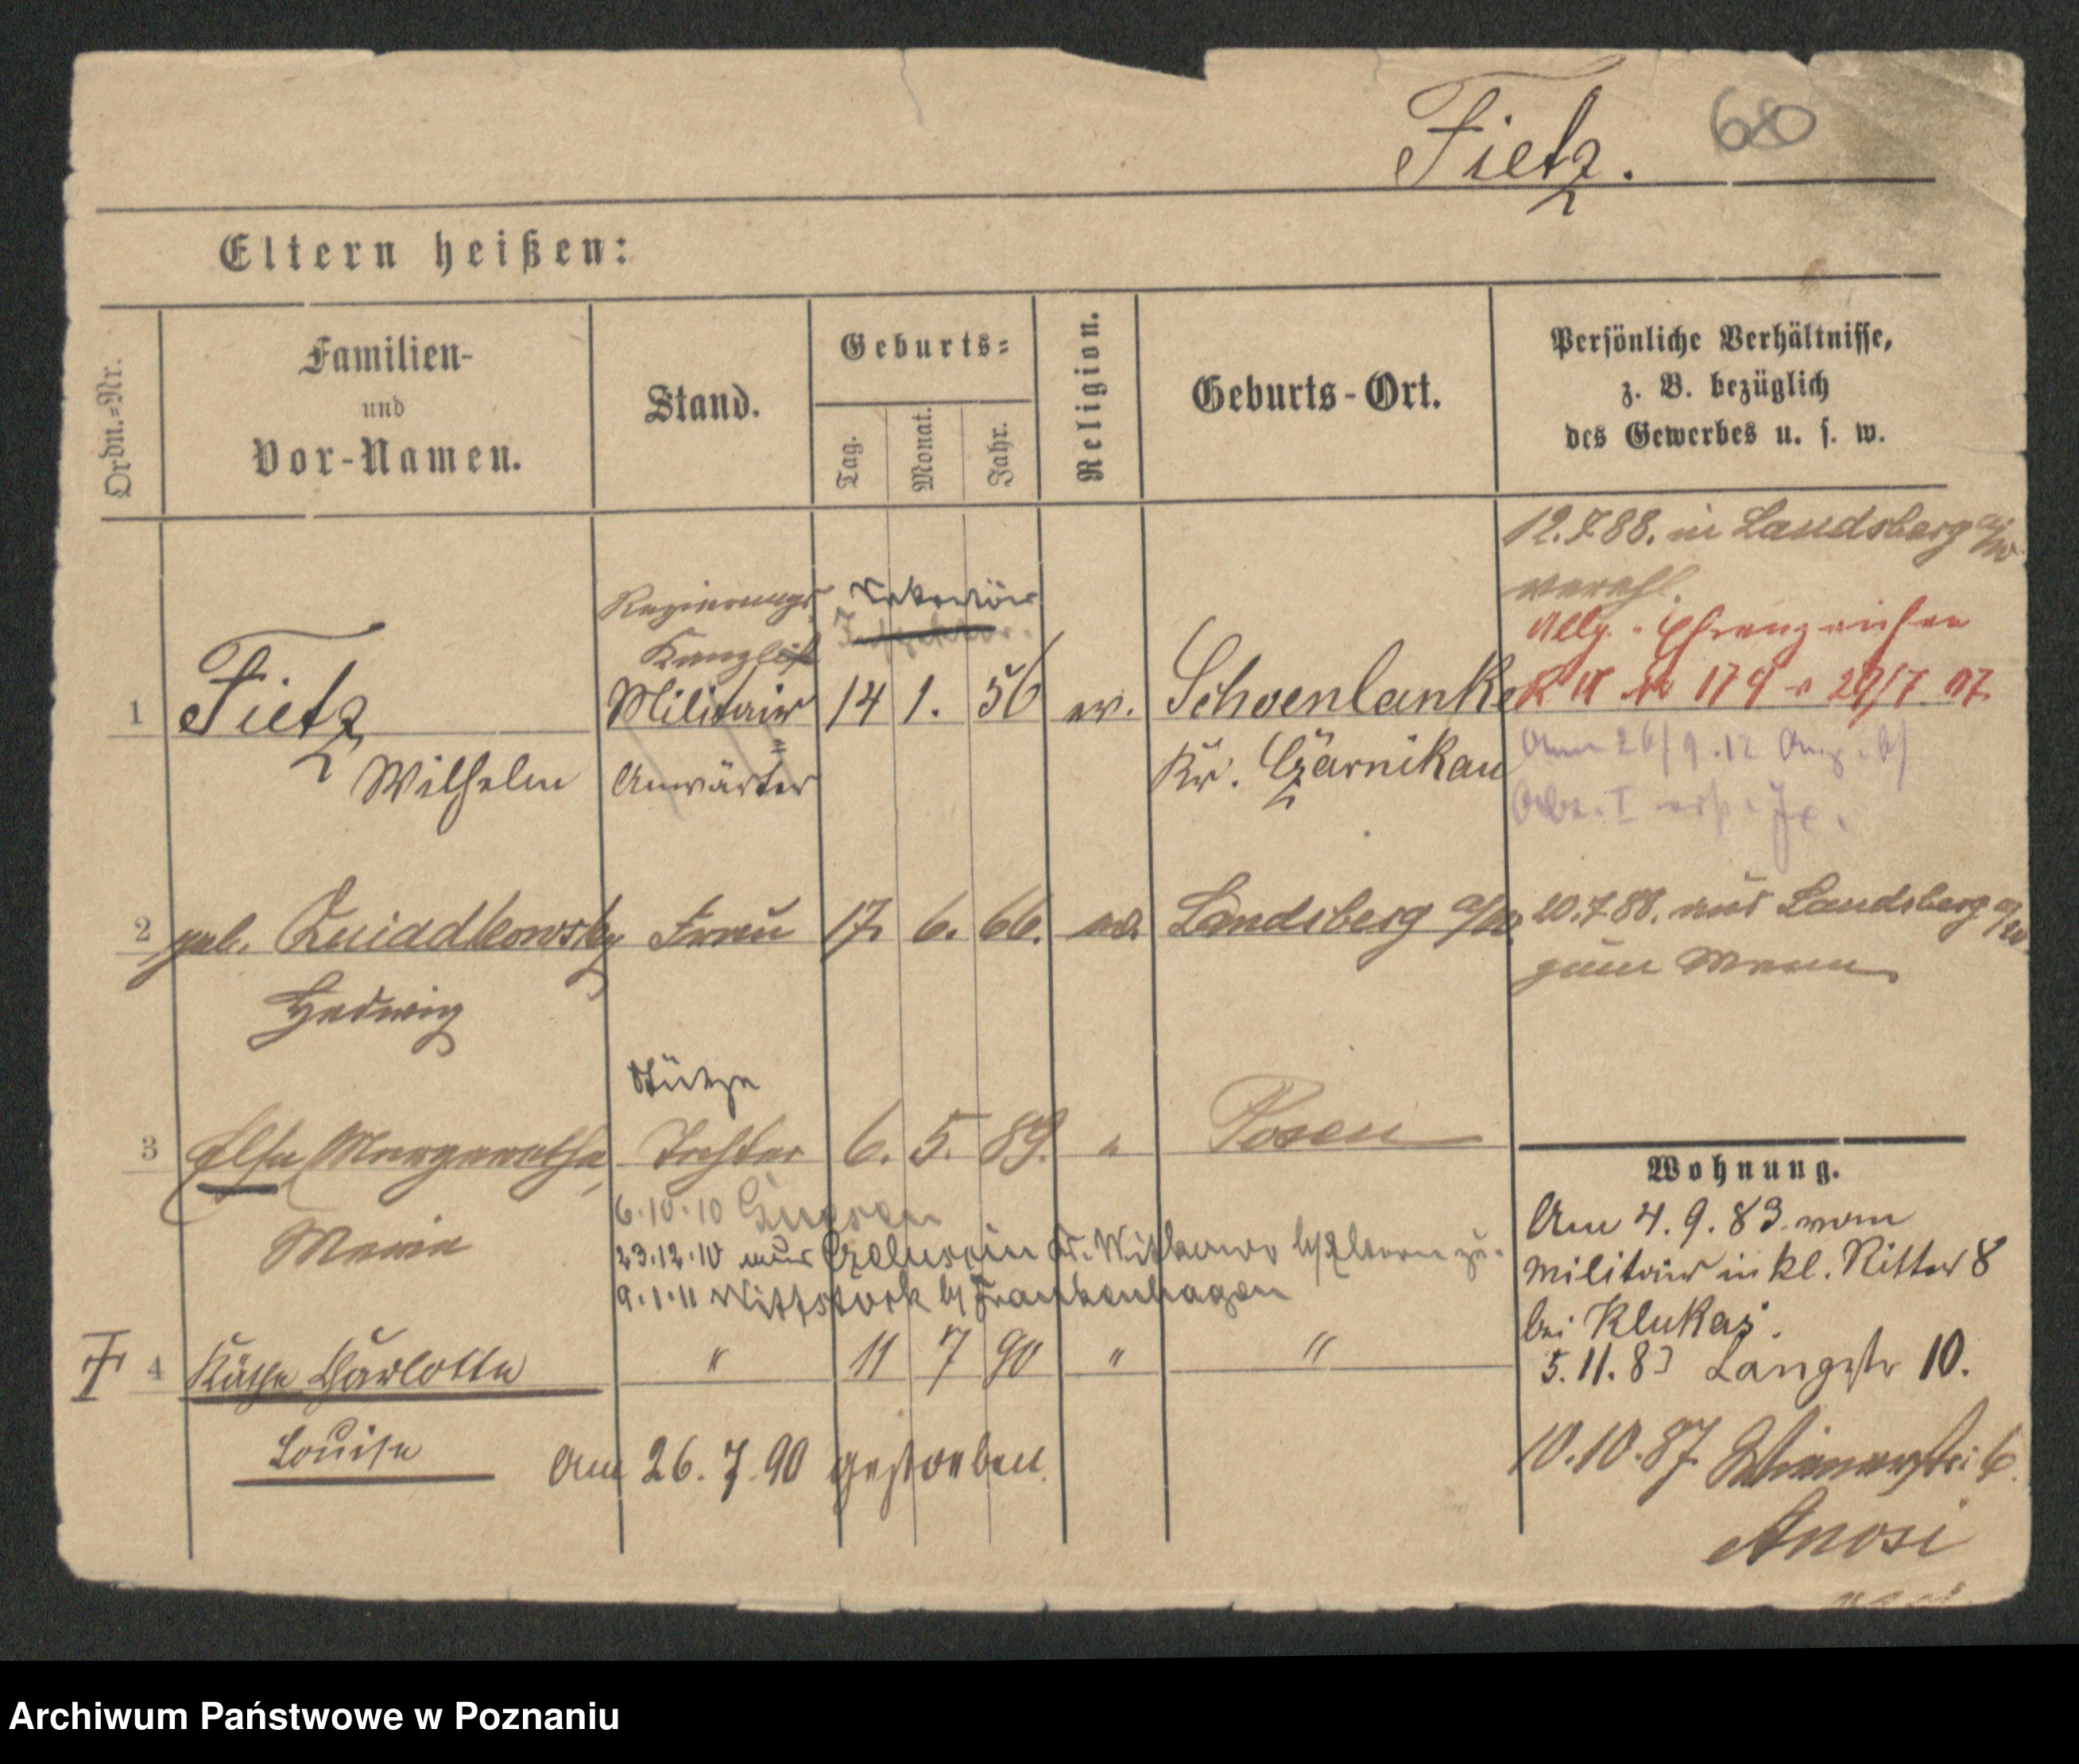 Fietz. 60
Eltern heißen:
Ordn.=Nr.
Familien-
und
Vor-Namen.
Stand.
Geburts=
Tag.
Monat.
Jahr.
Religion.
Geburts-Ort.
Persönliche Verhältnisse,
z. B. bezüglich
des Gewerbes u. s. w.
12.7.88. in Landsberg a/W
verehl.
Allg. Ehrenzeichen
Regierungs Sekretär
Kanzlist
1 Fietz Militair 14 1. 56 ev. Schoenlanke
Wilhelm Anwärter Kr. Czarnikau
2 geb. Quiadkowsky Frau 17. 6. 66. ev. Landsberg a/W. 20.7.88. aus Landsberg a/W
Hedwig zum Mann
Stütze
3 Elsa Margarethe Tochter 6. 5. 89. " Posen
Maria
6.10.10 Gnesen
23.12.10 aus Kr. Witkowo b/ Eltern zu.
9.1.11 Wittstock b/ Frankenhagen
4 Käthe Charlotte " 11 7 90 " "
Louise Am 26.7.90 gestorben.
Wohnung.
Am 4.9.83. vom
Militair in kl. Ritter 8
bei Klukas.
5.11.83 Langestr 10.
10.10.87. 6.